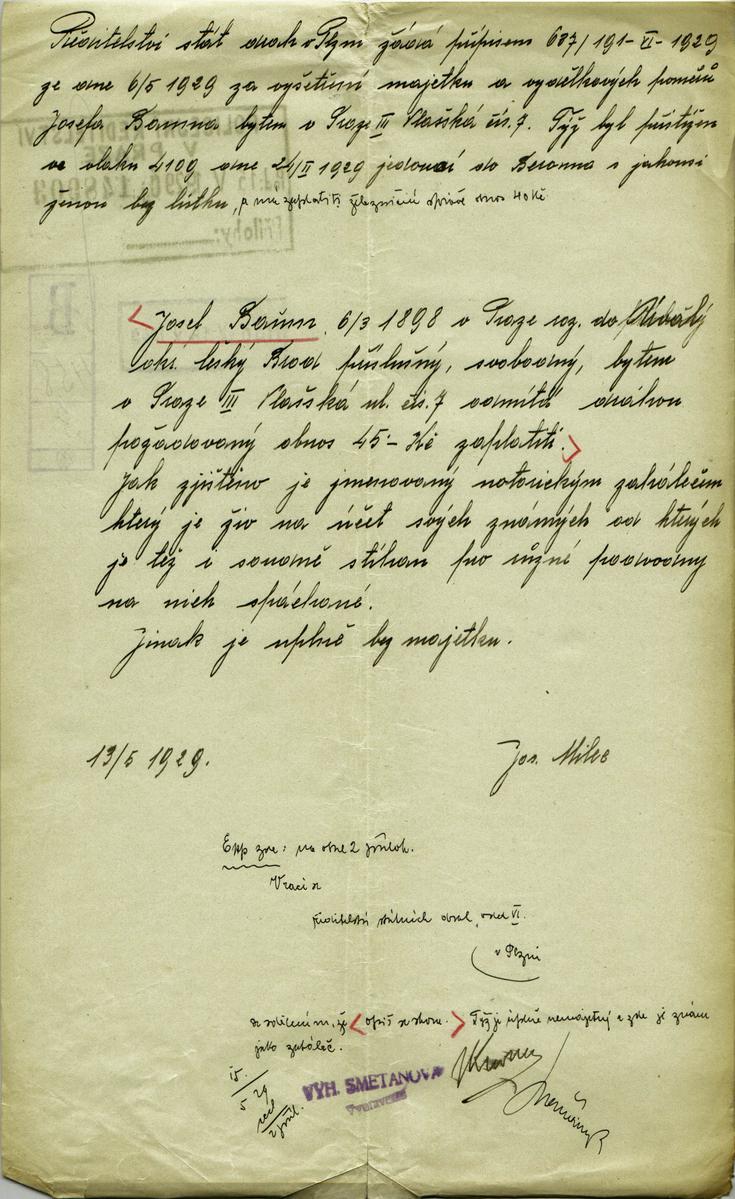 Ředitelství stát drah v Plzni žádá přípisem 637/191-VI-1929
ze dne 6/5 1929 za vyšetření majetku a výdělkových poměrů
Josefa Bauma bytem v Praze III Vlašská čís. 7. Týž byl přistižen
ve vlaku 4109 dne 24/II 1929 jedoucí do Berouna s jakousi
ženou bez lístku, a má zaplatiti železniční správě obnos 40 Kč
Josef Baum, 6/3 1898 v Praze roz. do
okr. Český Brod příslušný, svobodný, bytem
v Praze III Vlašská ul. čís. 7 odmítá dráhou
požadovaný obnos 45- Kč zaplatiti.
Jak zjištěno je jmenovaný notorickým zahálečem
který je živ na účet svých známých od kterých
je též i soudně stíhán pro různé podvody
na nich spáchané.
Jinak je úplně bez majetku.
13/5 1929.
Jos. Milec
2 příloh.
Vrací se
ředitelství státních drah, odd VI.
v Plzni
se sdělením, že opis se shora. Týž je úplně nemajetný a zde je znám
jako zaháleč.
15/5 29
2 příl.
VÝH. SMETANOVA